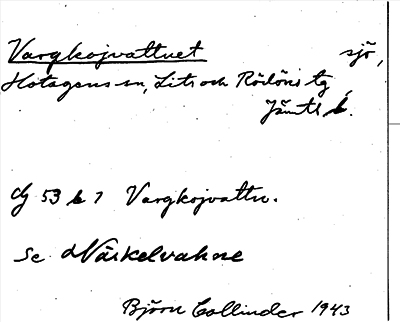 Vargkojvattnet sjö,
Hotagens sn, Lits och Rödöns tg
Jämtl l.
dg 53 b 7 Vargkojvattn.
Se Näskelvahne
Björn Collinder 1943